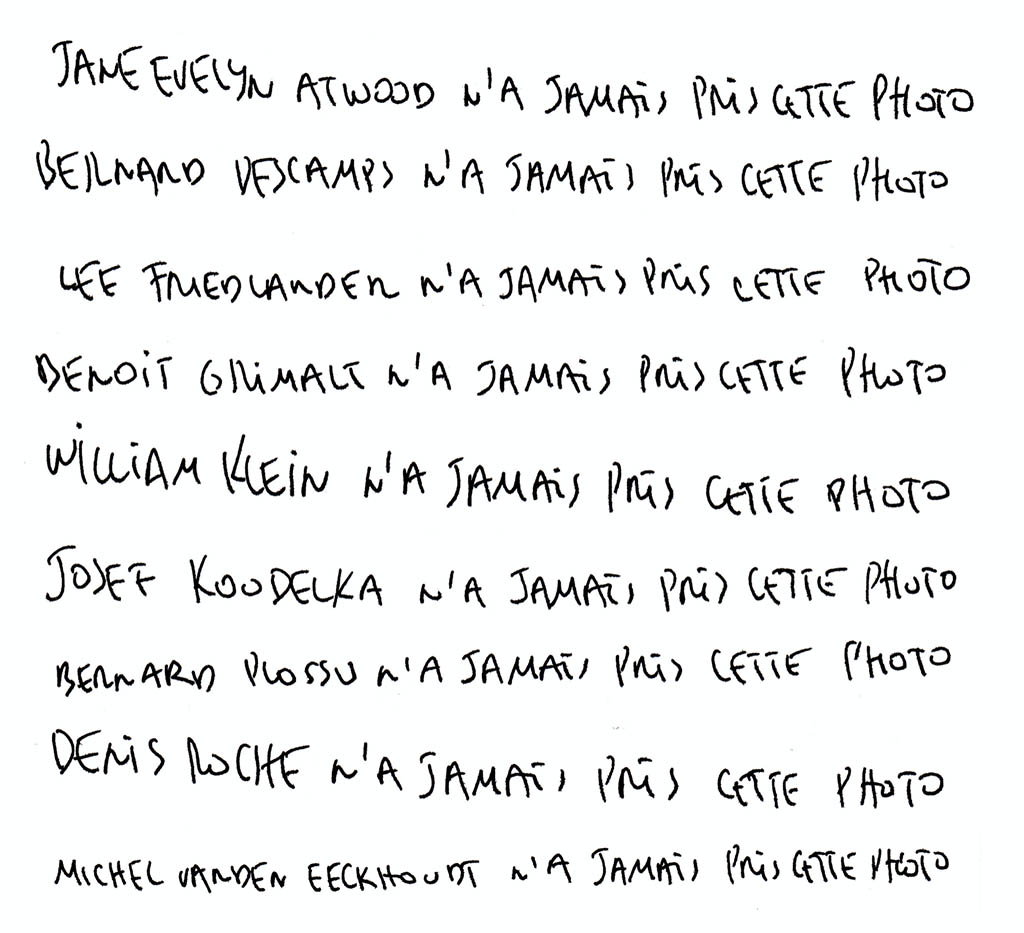 JANE EVELYN ATWOOD N'A JAMAIS PRIS CETTE PHOTO
BERNARD DESCAMPS N'A JAMAIS PRIS CETTE PHOTO
LEE FRIEDLANDER N'A JAMAIS PRIS CETTE PHOTO
BENOIT GRIMALT N'A JAMAIS PRIS CETTE PHOTO
WILLIAM KLEIN N'A JAMAIS PRIS CETTE PHOTO
JOSEF KOUDELKA N'A JAMAIS PRIS CETTE PHOTO
BERNARD PLOSSU N'A JAMAIS PRIS CETTE PHOTO
DENIS ROCHE N'A JAMAIS PRIS CETTE PHOTO
MICHEL VANDEN EECKHOUDT N'A JAMAIS PRIS CETTE PHOTO